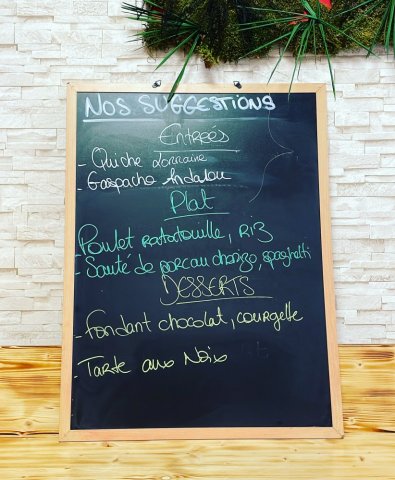 NOS SUGGESTIONS
Entrées
- Quiche Lorraine
- Gaspacho Andalou
Plat
- Poulet ratatouille, Riz
- Sauté de porc au chorizo, spaghetti
DESSERTS
- Fondant chocolat, courgette
- Tarte aux Noix